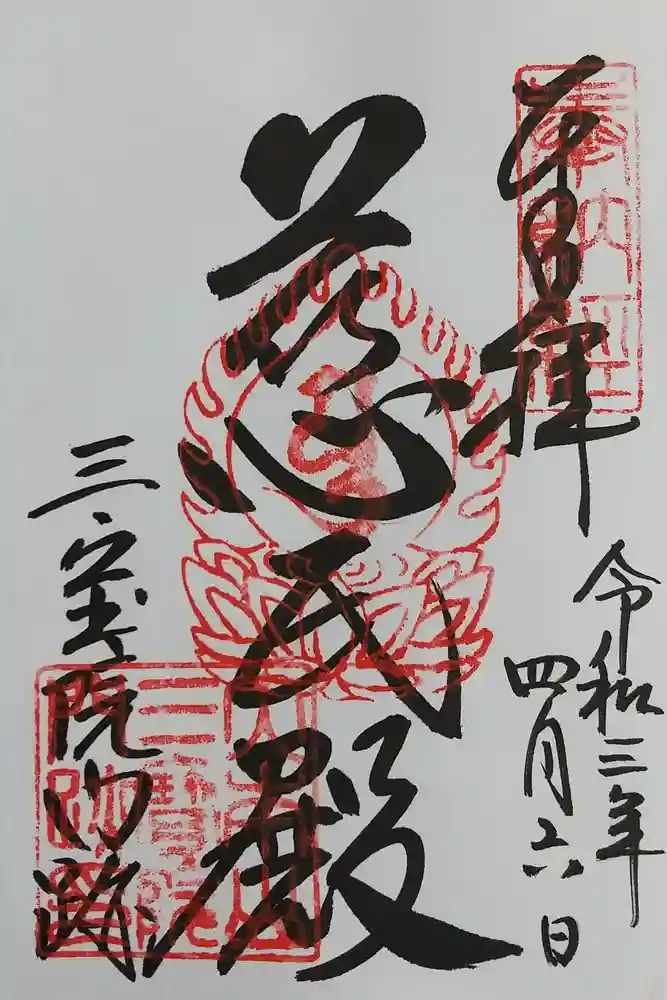 奉拝
令和三年
四月六日
慈氏殿
三宝院門跡
三寶院